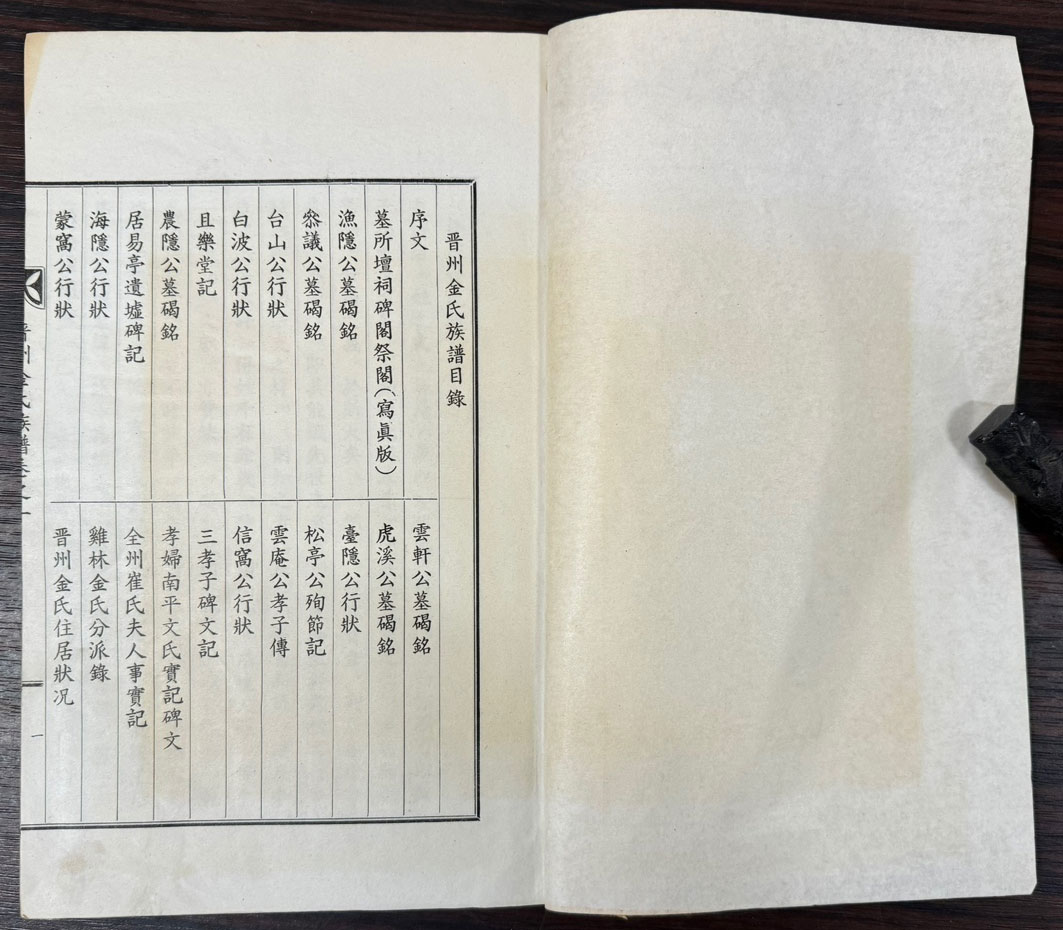 晋州金氏族譜目錄
序文
墓所壇祠碑閣祭閣(寫眞版)
漁隱公墓碣銘
叅議公墓碣銘
台山公行狀
白波公行狀
且樂堂記
農隱公墓碣銘
居易亭遺墟碑記
海隱公行狀
蒙窩公行狀
雲軒公墓碣銘
虎溪公墓碣銘
臺隱公行狀
松亭公殉節記
雲庵公孝子傳
信窩公行狀
三孝子碑文記
孝婦南平文氏實記碑文
全州崔氏夫人事實記
雞林金氏分派錄
晋州金氏住居狀況
晋州金氏族譜卷之一
一